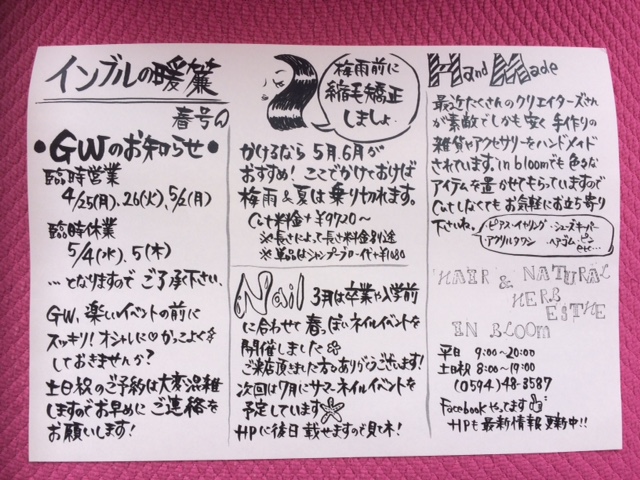 インブルの暖簾
春号
・GWのお知らせ・
臨時営業
4/25(月)、26(火)、5/2(月)
臨時休業
5/4(水)、5(木)
…となりますので ご了承下さい。
GW、楽しいイベントの前に
スッキリ!オシャレに♡かっこよく
しておきませんか?
土日祝のご予約は大変混雑
しますのでお早めにご連絡を
お願いします!
梅雨前に
縮毛矯正
しましょ
かけるなら 5月、6月が
おすすめ! ここでかけておけば
梅雨&夏は乗り切れます。
Cut料金+¥9720〜
※長さによって長さ料金別途
※単品はシャンプーブロー代+¥1080
Nail 3月は卒業や入学前
に合わせて春っぽいネイルイベントを
開催しました
ご来店頂きました方ありがとうございます!
次回は7月にサマーネイルイベントを
予定しています
HPに後日載せますので見てネ!
Hand Made
最近たくさんのクリエイターズさん
が素敵でしかも安く 手作りの
雑貨やアクセサリーをハンドメイド
されています。in bloomでも色々な
アイテムを置かせてもらっていますので
Cutしなくてもお気軽にお立ち寄り
下さいね。
・ピアス・イヤリング ・シューズキーパー
・アクリルタワシ ・ヘアゴム・ピン
etc…
HAIR & NATURAL
HERB
ESTHE
IN BLOOM
平日 9:00〜20:00
土日祝 8:00〜19:00
(0594)48-3587
Facebookやってます
HPも最新情報更新中!!